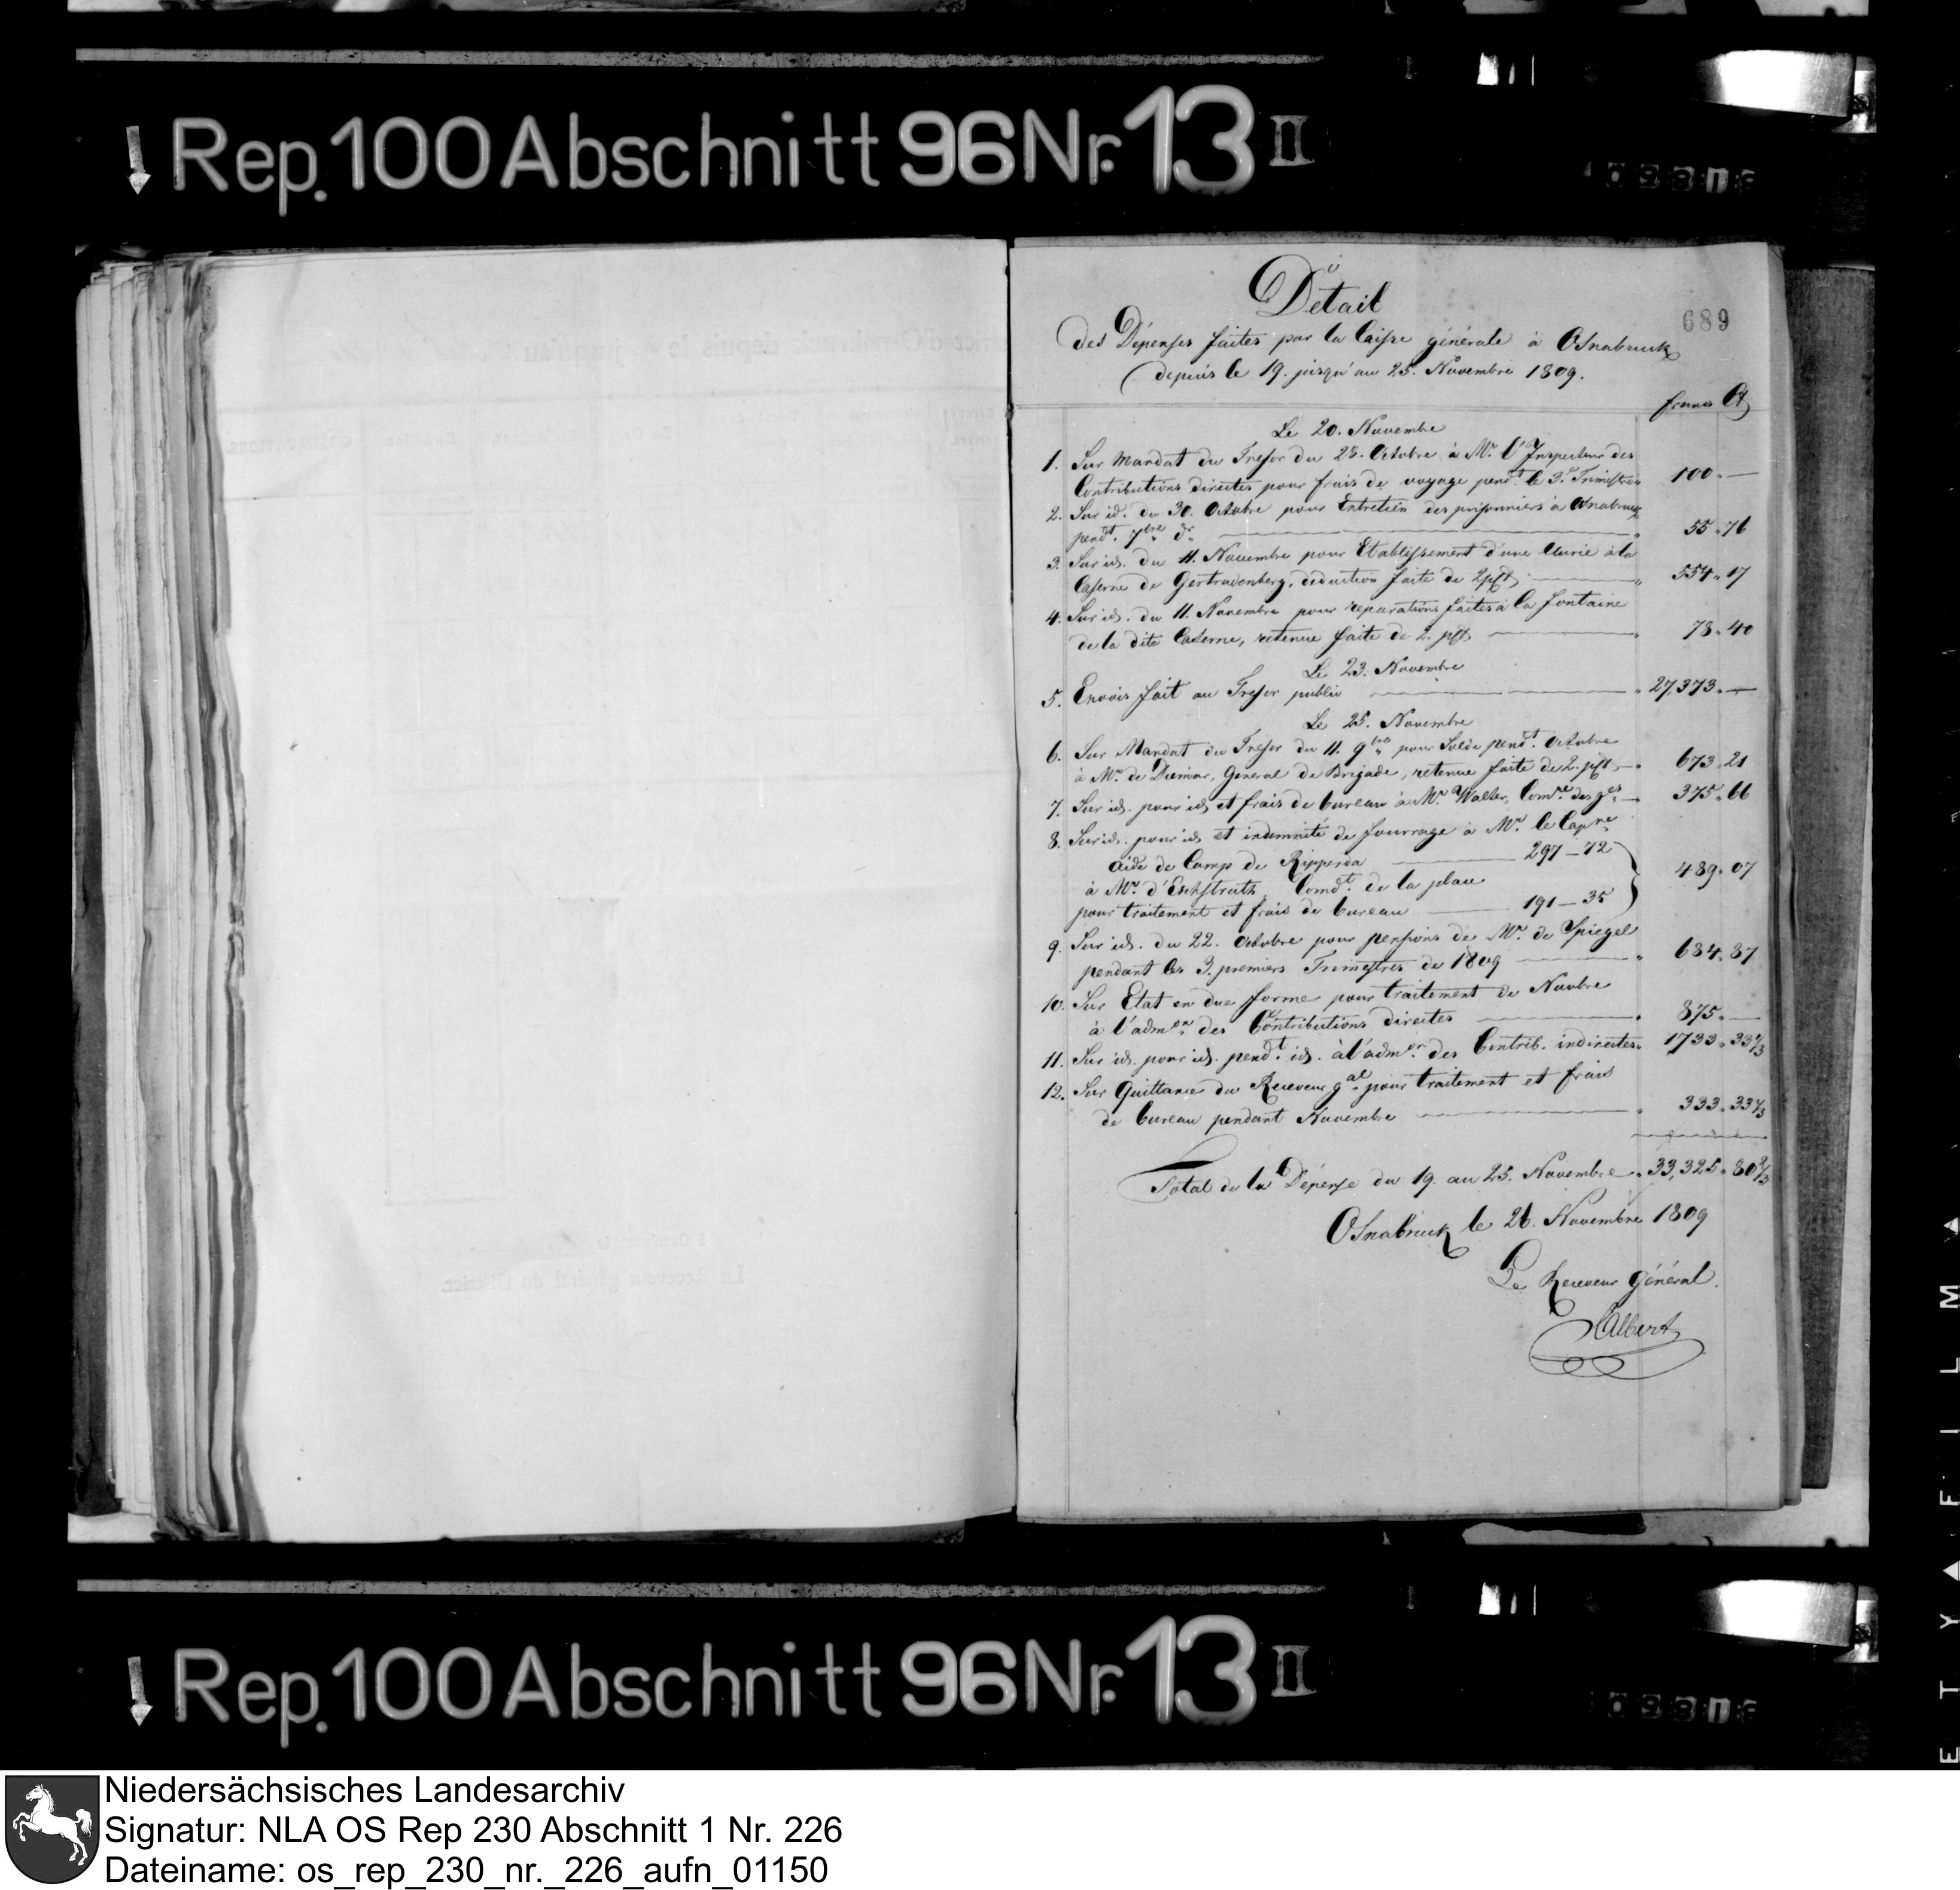 Rep. 100 Abschnitt 96 Nr. 13 II
Détail
689
des Dépenses faites par la Caisse générale à Osnabruck
depuis le 19. jusqu'au 25. Novembre 1809.
francs Cs
Le 20. Novembre
1. Sur Mandat du Tresor du 28. Octobre à Mr. l'Inspecteur des
Contributions directes pour frais de voyage pendt. le 3e. Trimestre 100. —
2. Sur id. du 30. Octobre pour Entretien des prisonniers à Osnabruck
pendt. 7bre dr. 55. 76
3. Sur id. du 11. Novembre pour Etablissement d'une Ecurie à la
Caserne de Gertrudenberg, deduction faite de 2 pCt. 554. 17
4. Sur id. du 11. Novembre pour reparations faites à la fontaine
de la dite Caserne, retenue faite de 2. pCt. 78. 40
Le 23. Novembre
5. Envois fait au Tresor public 27,373. —
Le 25. Novembre
6. Sur Mandat du Tresor du 11. 9bre pour Solde pendt. Octobre
à Mr. de Diemar, General de Brigade, retenue faite de 2. pCt. 673. 21
7. Sur id. pour id. et frais de bureau à Mr. Walter, Comre. des ges. 375. 66
8. Sur id. pour id. et indemnité de fourrage à Mr. le Capne
aide de Camp de Ripperda 297 — 72
à Mr. d'Eschstruth, Comdt. de la place 489. 07
pour traitement et frais de bureau 191 — 35
9. Sur id. du 22. Octobre pour pensions de Mr. de Spiegel
pendant les 3. premiers Trimestres de 1809 684. 87
10. Sur Etat en due forme pour traitement de Novbre
à l'admon. des Contributions directes 875. —
11. Sur id. pour id. pendt. id. à l'admon. des Contrib. indirectes. 1733. 33 1/3
12. Sur Quittance du Receveur gal. pour traitement et frais
de bureau pendant Novembre 333. 33 1/3
Total de la Dépense du 19. au 25. Novembre 33,325. 80 2/3
Osnabruck le 26. Novembre 1809
Le Receveur Général.
Albert
Rep. 100 Abschnitt 96 Nr. 13 II
Niedersächsisches Landesarchiv
Signatur: NLA OS Rep 230 Abschnitt 1 Nr. 226
Dateiname: os_rep_230_nr._226_aufn_01150